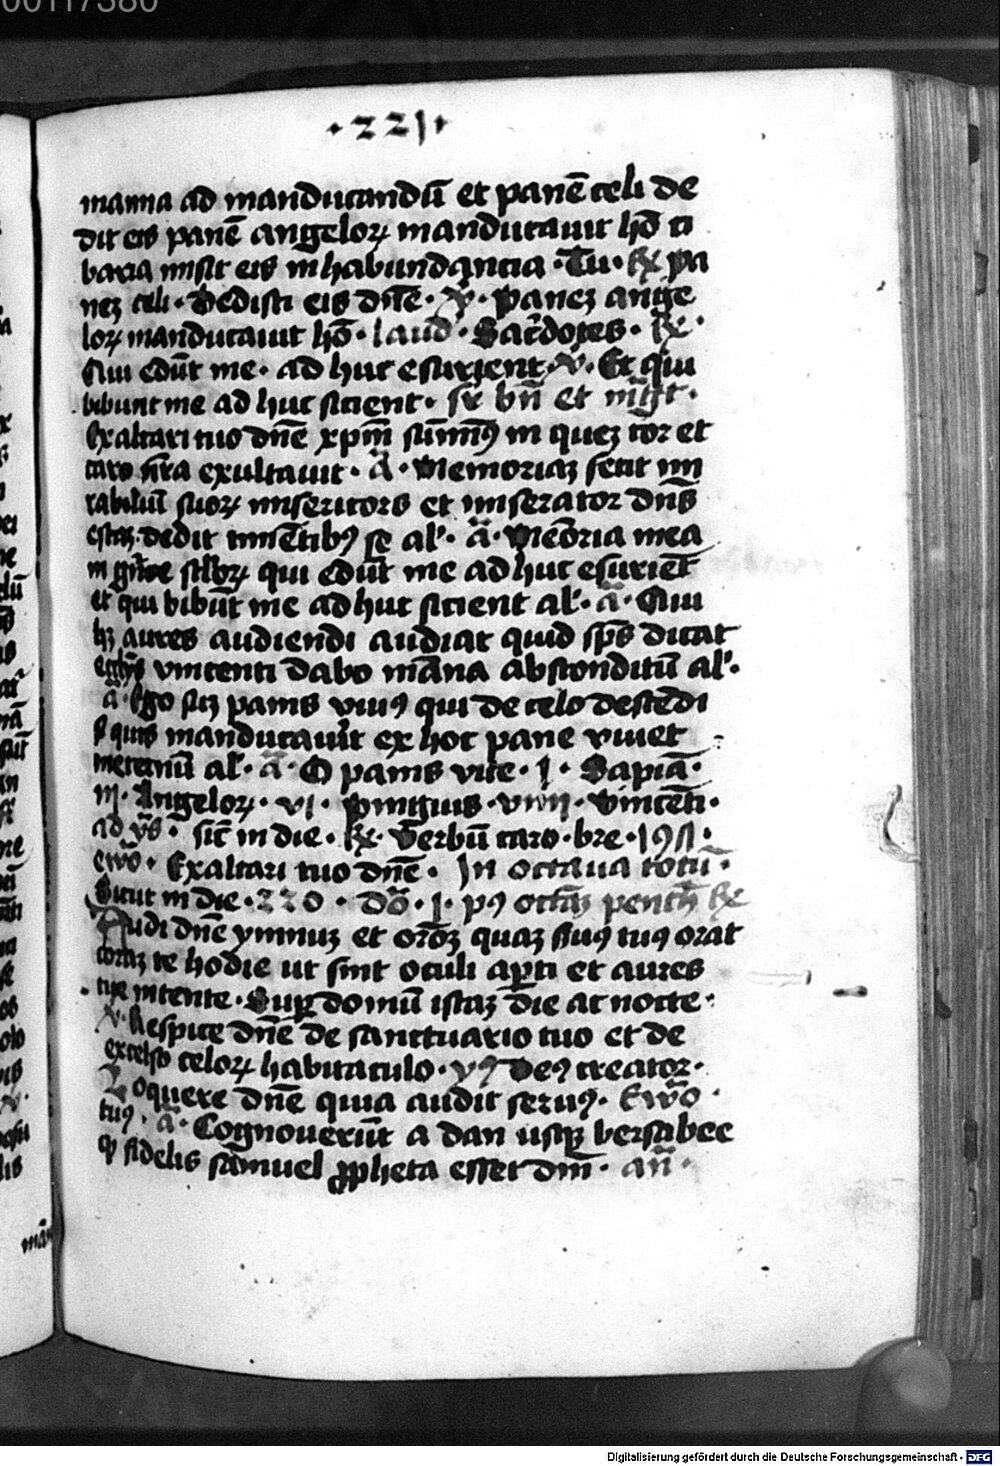 00117380
·221·
manna ad manducandū et panē celi de
dit eis panē angeloꝝ manducauit hō ci
baria misit eis in habundancia · Tu · ℟ pa
neꝫ celi · Dedisti eis dn̄e · ℣ · Paneꝫ ange
loꝝ manducauit hō · laud · Sac̄dotes ·
Qui edūt me · ad huc esurient · ℣ · Et qui
bibunt me ad huc sicient · bn̄ et
Exaltari tuo dn̄e xp̄m sūmꝰ in queꝫ cor et
caro nr̄a exultauit · a̅ · Memoriaꝫ fecit mi
rabiliū suoꝝ misericors et miserator dn̄s
escaꝫ dedit timētibꝰ se al' · a̅ · Mēoria mea
in qui edūt me ad huc esuriēt
et qui bibūt me ad huc sicient al' · a̅ · Qui
hꝫ aures audiendi audiat quid sp̄s dicat
vincenti dabo māna absconditū al' ·
a̅ · Ego suꝫ panis viuꝰ qui de celo descēdi
si quis manducauit ex hoc pane viuet
in eternū al' · a̅ · O panis vite · j · Sapiā ·
iij · Angeloꝝ · vj · Pinguis · viiij · Vincēti ·
ad · sic̄ in die · ℟ · Verbū caro · bre · 191 ·
ew̄o · Exaltari tuo dn̄e · In octaua totū ·
Sicut in die · 220 · Dō · j · pꝰ octaꝫ penth̄ ℟
Audi dn̄e ymnuꝫ et orōꝫ quaꝫ suꝰ tuꝰ orat
coraꝫ te hodie ut sint oculi apti et aures
tue intente · Suꝑ domū istaꝫ die ac nocte ·
℣ · Respice dn̄e de sanctuario tuo et de
excelso celoꝝ habitaculo · yꝰ Deꝰ creator ·
Loquere dn̄e quia audit seruꝰ · Ew̄o ·
tuꝰ · a̅ · Cognouerūt a dan usqꝫ bersabee
ꝙ fidelis samuel ꝓpheta esset dn̄i · an̄ ·
Digitalisierung gefördert durch die Deutsche Forschungsgemeinschaft - DFG